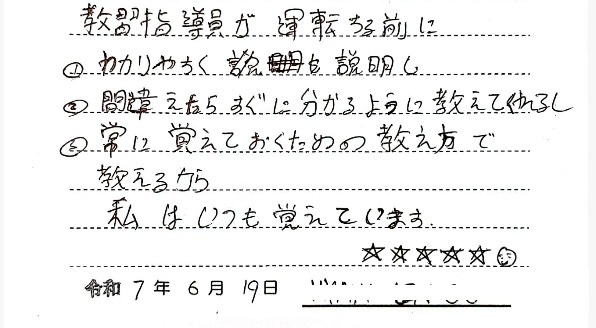 教習指導員が運転する前に
① わかりやすく説明し
② 間違えたらすぐに分かるように教えてくれるし
③ 常に覚えておくための教え方で
教えるから
私はいつも覚えています.
☆☆☆☆☆
令和 7年 6月 19日